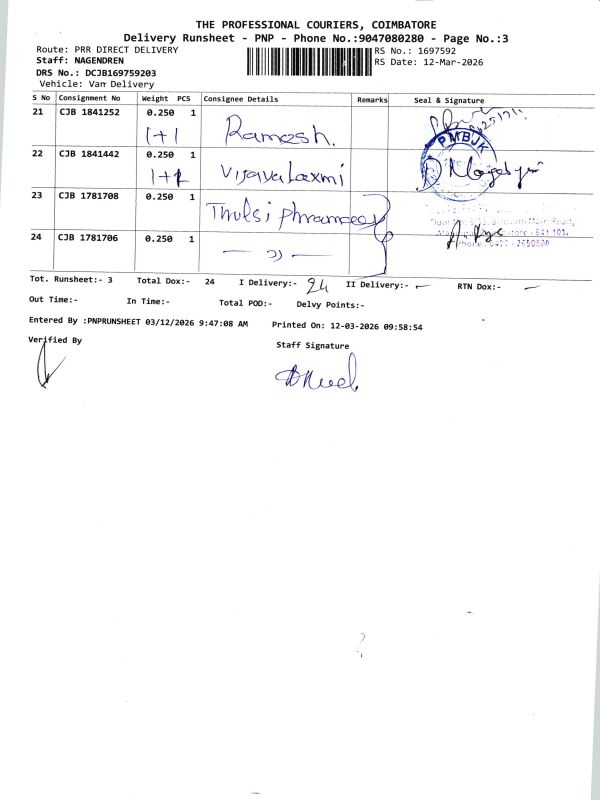 THE PROFESSIONAL COURIERS, COIMBATORE
Delivery Runsheet - PNP - Phone No.:9047080280 - Page No.:3
Route: PRR DIRECT DELIVERY
RS No.: 1697592
Staff: NAGENDREN
RS Date: 12-Mar-2026
DRS No.: DCJB169759203
Vehicle: Van Delivery
S No Consignment No Weight PCS Consignee Details Remarks Seal & Signature
21 CJB 1841252 0.250 1
1+1 Ramesh.
PMBJK
22 CJB 1841442 0.250 1
Vijaya Laxmi
23 CJB 1781708 0.250 1
Thulsi
24 CJB 1781706 0.250 1
Tot. Runsheet:- 3 Total Dox:- 24 I Delivery:- 24 II Delivery:- - RTN Dox:- -
Out Time:- In Time:- Total POD:- Delvy Points:-
Entered By :PNPRUNSHEET 03/12/2026 9:47:08 AM Printed On: 12-03-2026 09:58:54
Verified By
Staff Signature